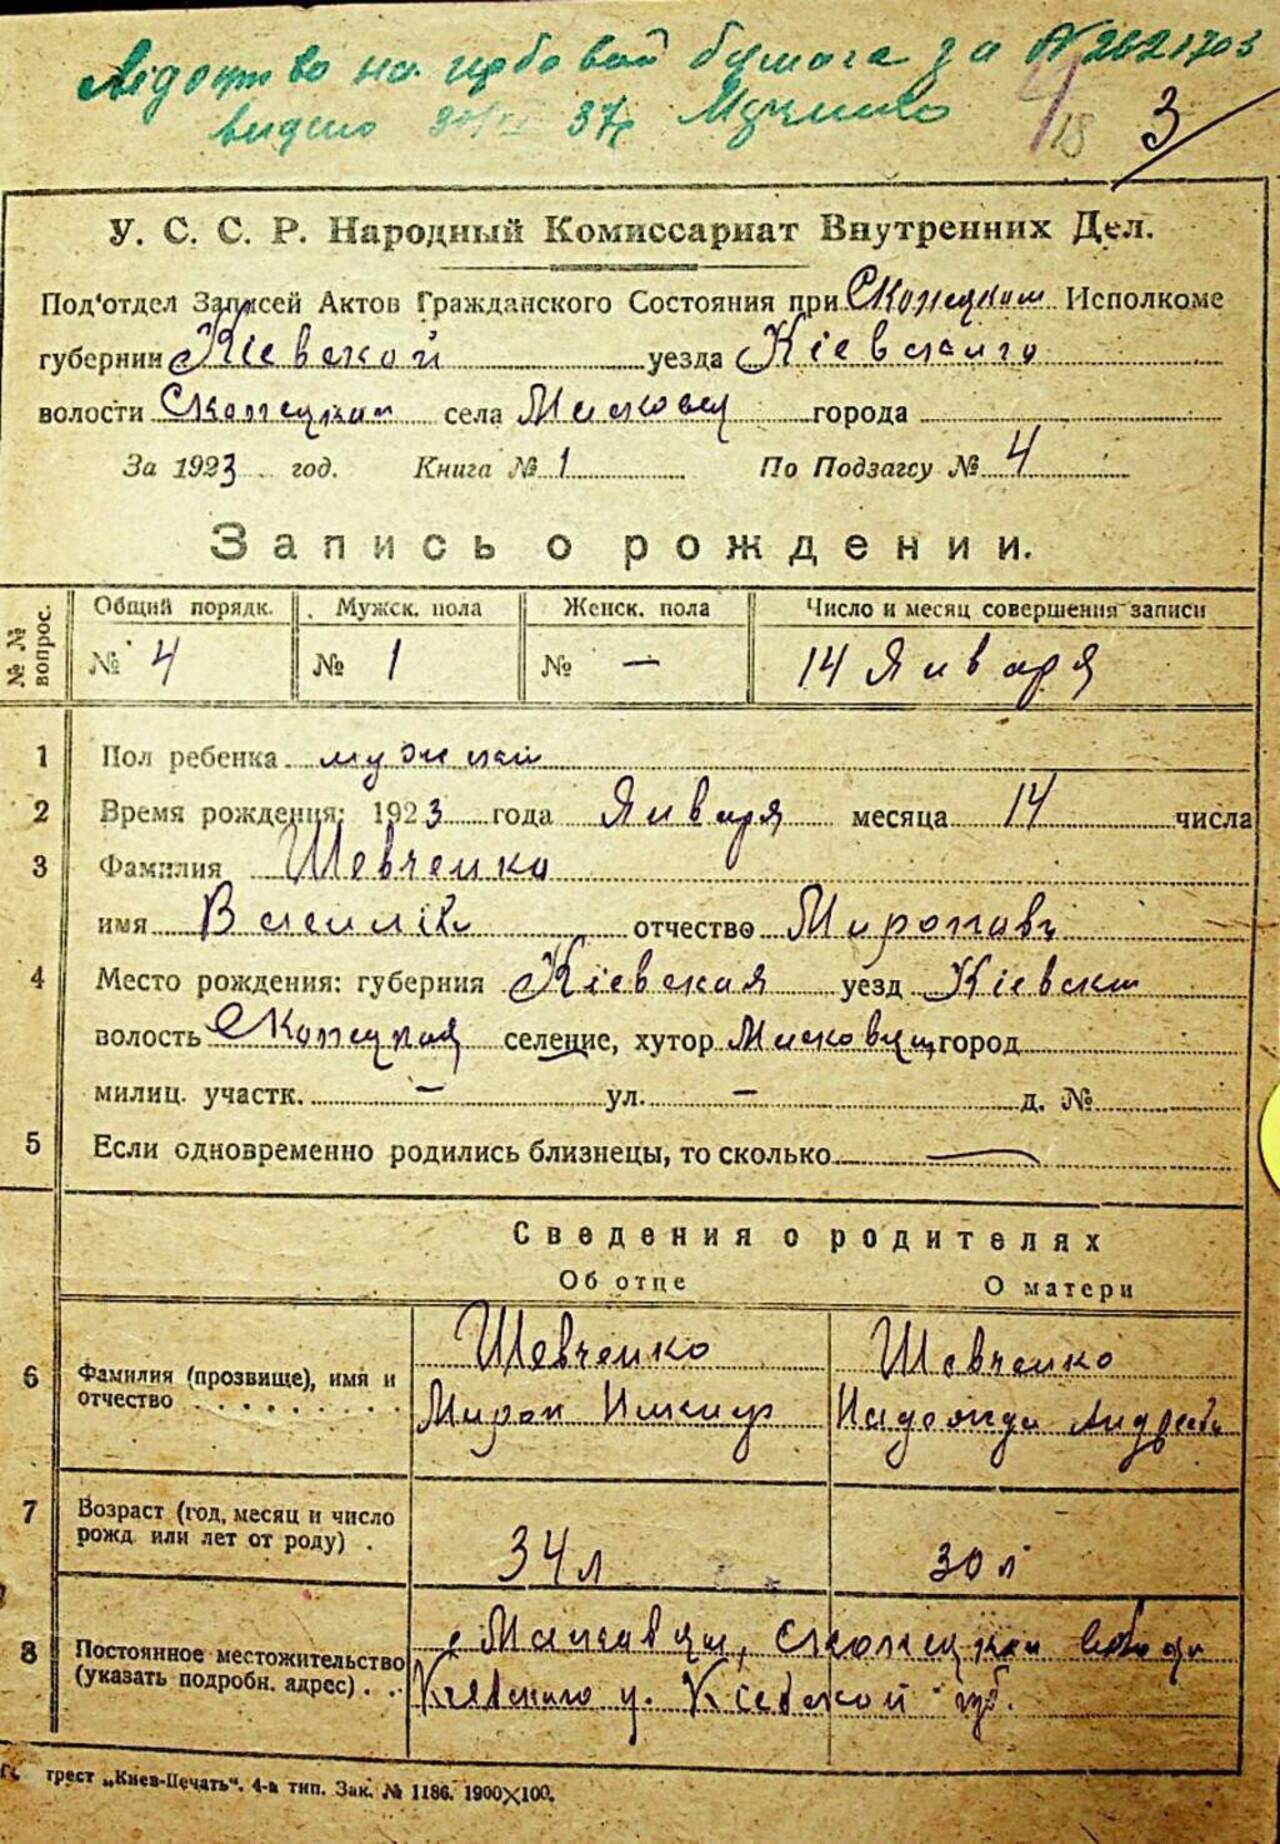 на гербовой бумаге за № 2621703
видано 37 р
18 3
У. С. С. Р. Народный Комиссариат Внутренних Дел.
Под'отдел Записей Актов Гражданского Состояния при Исполкоме
губернии Кіевской уезда Кіевскаго
волости села города
За 1923 год. Книга № 1 По Подзагсу № 4
Запись о рождении.
№ № вопрос.
Общий порядк. Мужск. пола Женск. пола Число и месяц совершения записи
№ 4 № 1 № — 14 Января
1 Пол ребенка мужской
2 Время рождения: 1923 года Января месяца 14 числа
3 Фамилия Шевченко
имя Василій отчество Миронавъ
4 Место рождения: губерния Кіевская уезд Кіевск
волость селение, хутор город
милиц. участк. — ул. — д. №
5 Если одновременно родились близнецы, то сколько —
Сведения о родителях
Об отце О матери
6 Фамилия (прозвище), имя и отчество Шевченко Мирон Шевченко Надежда Андреев
7 Возраст (год, месяц и число рожд. или лет от роду) 34 л 30 л
8 Постоянное местожительство (указать подробн. адрес)
Киевскаго у. Киевской губ.
трест „Киев-Печать“. 4-а тип. Зак. № 1186. 1900×100.